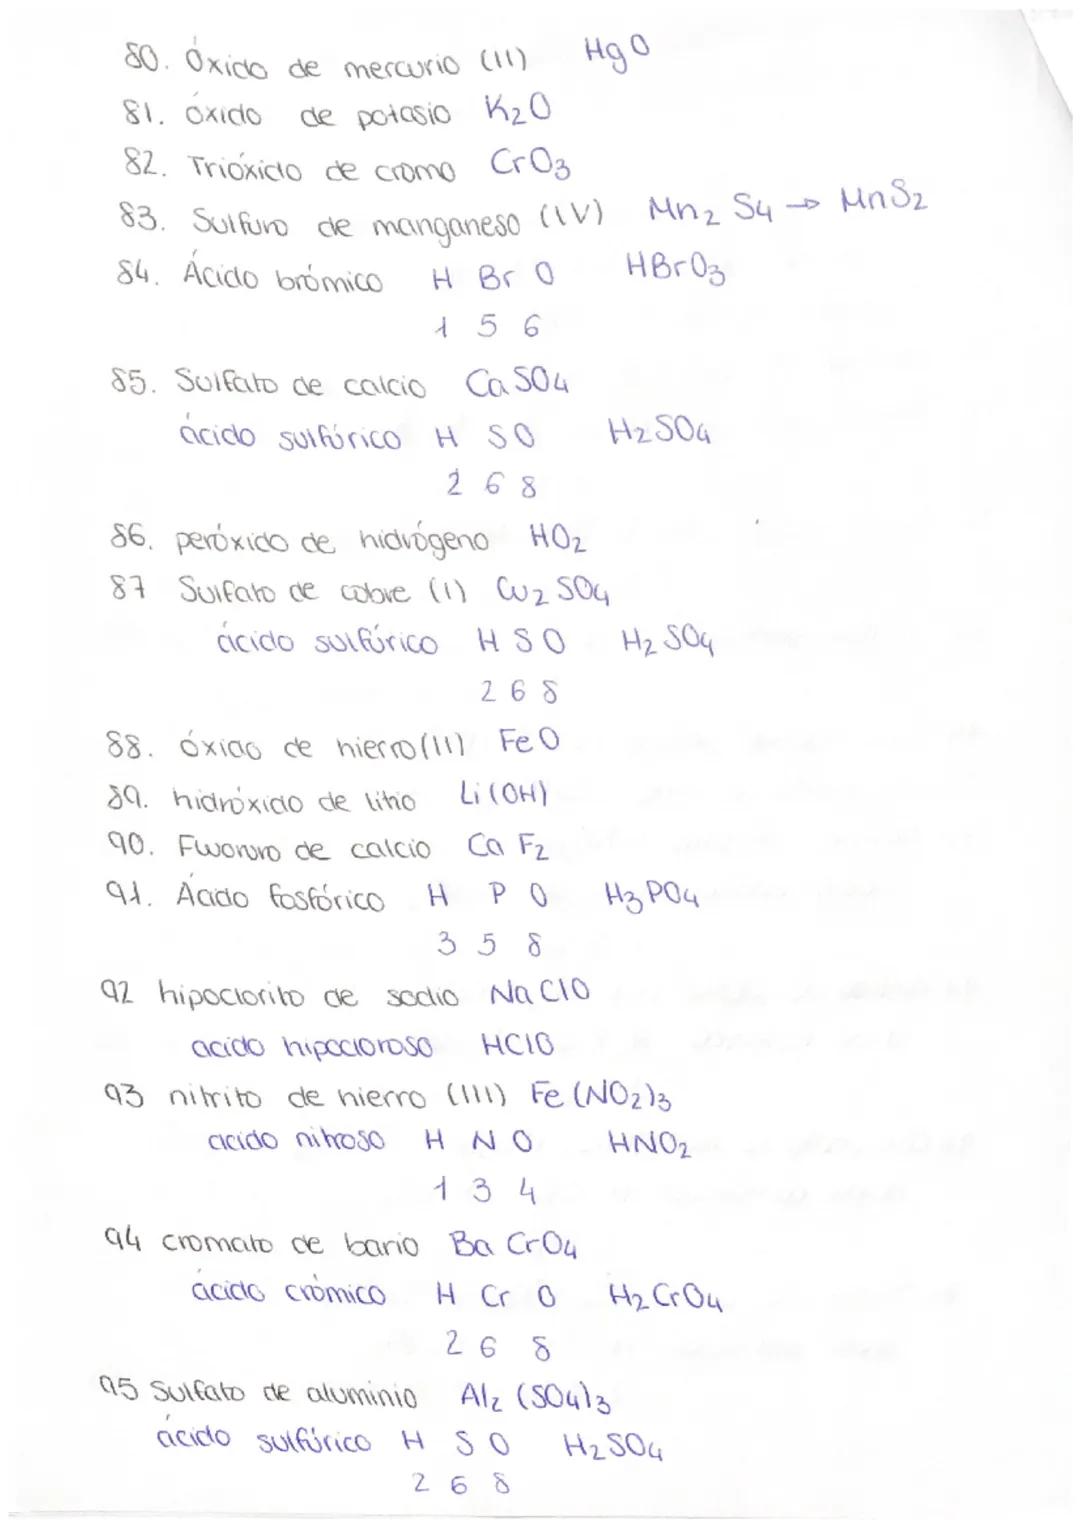 80. Óxido de mercurio (II) HgO
81. óxido de potasio K2O
82. Trióxido de cromo CrO3
83. Sulfuro de manganeso (IV) Mn2 S4 → MnS2
84. Ácido brómico H Br O HBrO3
1 5 6
85. Sulfato de calcio CaSO4
ácido sulfúrico H S O H2SO4
2 6 8
86. peróxido de hidrógeno HO2
87 Sulfato de cobre (I) Cu2 SO4
ácido sulfúrico H S O H2 SO4
2 6 8
88. óxido de hierro (II) FeO
89. hidróxido de litio Li(OH)
90. Fluoruro de calcio Ca F2
91. Ácido fosfórico H P O H3 PO4
3 5 8
92 hipoclorito de sodio NaClO
acido hipocloroso HClO
93 nitrito de hierro (III) Fe (NO2)3
acido nitroso H N O HNO2
1 3 4
94 cromato de bario Ba CrO4
ácido crómico H Cr O H2 CrO4
2 6 8
95 Sulfato de aluminio Al2 (SO4)3
ácido sulfúrico H S O H2 SO4
2 6 8